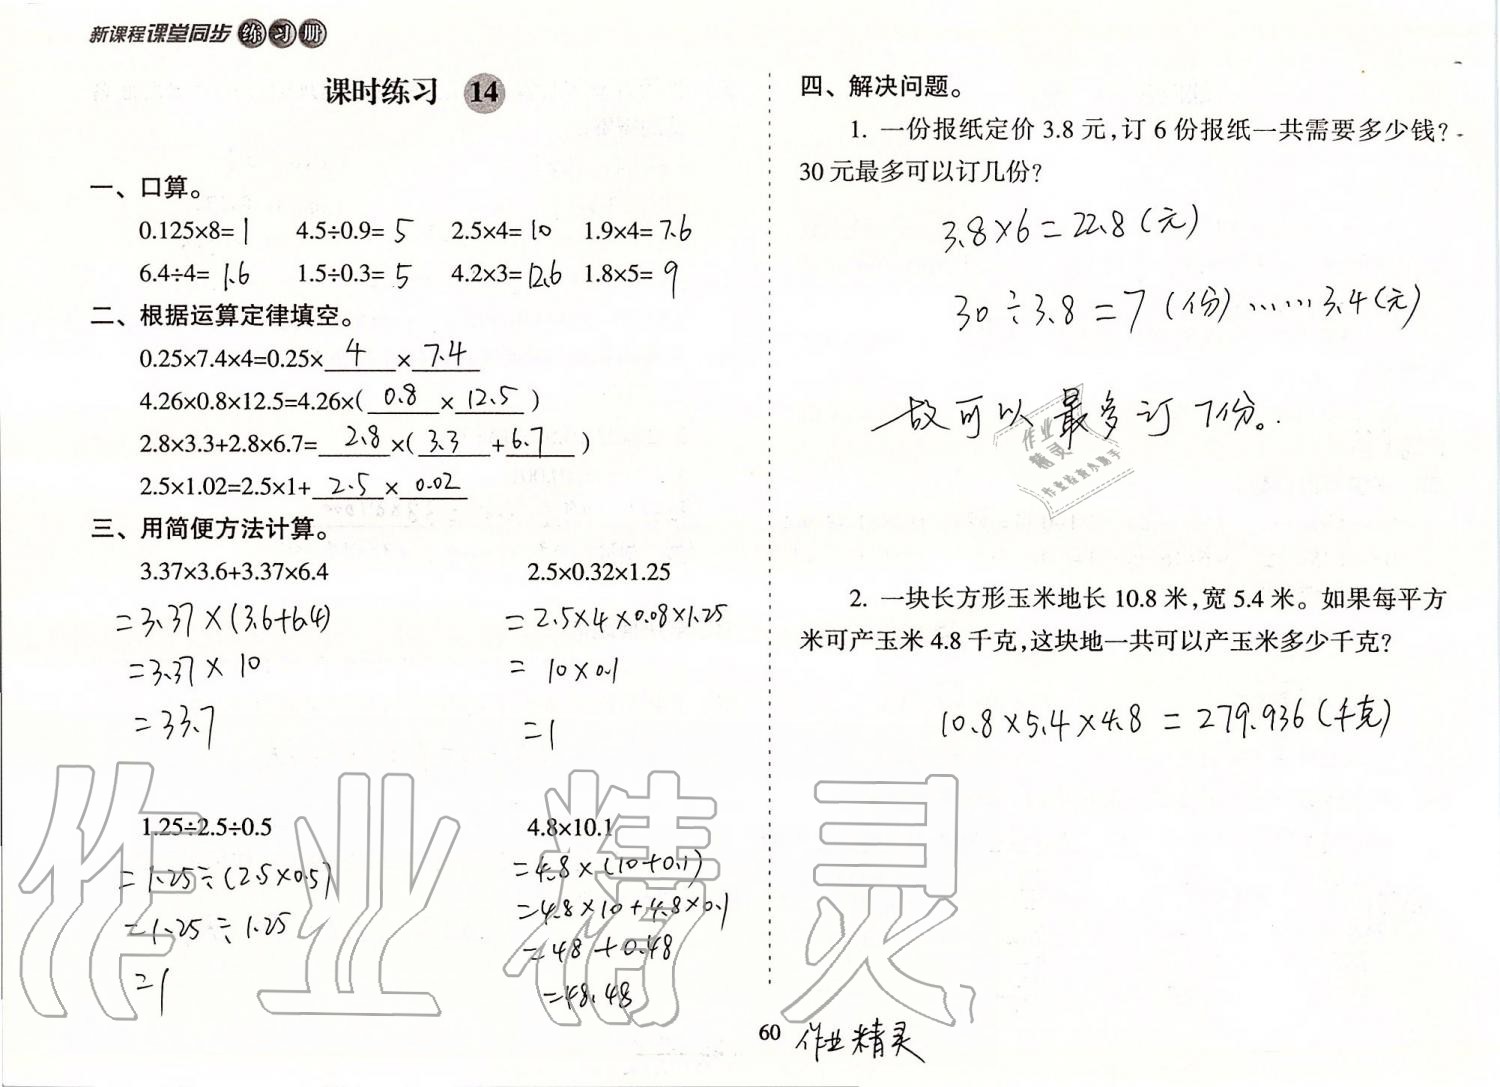 新课程课堂同步练习册
课时练习 14
一、口算。
0.125×8= 1 4.5÷0.9= 5 2.5×4= 10 1.9×4= 7.6
6.4÷4= 1.6 1.5÷0.3= 5 4.2×3= 12.6 1.8×5= 9
二、根据运算定律填空。
0.25×7.4×4=0.25× 4 × 7.4
4.26×0.8×12.5=4.26×( 0.8 × 12.5 )
2.8×3.3+2.8×6.7= 2.8 ×( 3.3 + 6.7 )
2.5×1.02=2.5×1+ 2.5 × 0.02
三、用简便方法计算。
3.37×3.6+3.37×6.4
=3.37×(3.6+6.4)
=3.37×10
=33.7
2.5×0.32×1.25
=2.5×4×0.08×1.25
= 10×0.1
=1
1.25÷2.5÷0.5
=1.25÷(2.5×0.5)
=1.25÷1.25
=1
4.8×10.1
=4.8×(10+0.1)
=4.8×10+4.8×0.1
=48+0.48
=48.48
四、解决问题。
1. 一份报纸定价 3.8 元,订 6 份报纸一共需要多少钱?
30 元最多可以订几份?
3.8×6=22.8(元)
30÷3.8=7(份)……3.4(元)
故可以最多订7份。
作业
精灵
作业检查小助手
2. 一块长方形玉米地长 10.8 米,宽 5.4 米。如果每平方
米可产玉米 4.8 千克,这块地一共可以产玉米多少千克?
10.8×5.4×4.8=279.936(千克)
作业精灵
60
作业精灵